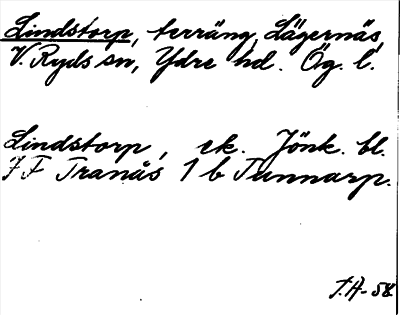 Lindstorp, terräng, Lägernäs,
V. Ryds sn, Ydre hd. Ög. l.
Lindstorp, ek. Jönk. bl.
7 F Tranås 1 b Tunnarp.
T.A-58